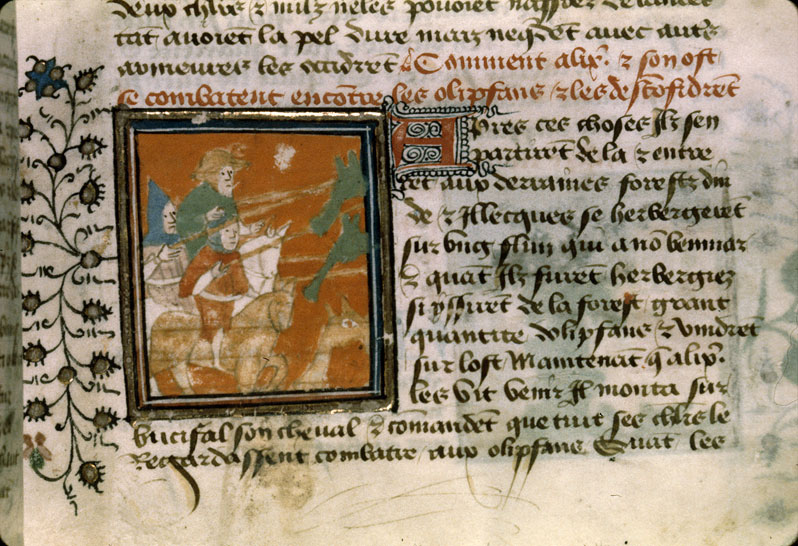 deux chlrs & milz ne les pouoiēt
tāt auoiēt la pel dure maiz neqdēt auec autrs
armeures les occidrēt Comment alixr & son ost
se combatent encontre les olipfans & les desconfidrēt
Apres ces choses Ilz sen
partirēt de la & entre
rēt aux derraines forestz din
de & Illecques se herbergerēt
sur vng flun qui a nō bemmar
& quāt Ilz furēt herbergiez
si yssirēt de la forest grant
quantite dolipfans & vindrēt
sur lost Maintenāt q alixr.
les vit venir Il monta sur
bucifal son cheual & cōmandēt que tuit ses chlrs le
Regardassent combatre aux olipfans Quāt les